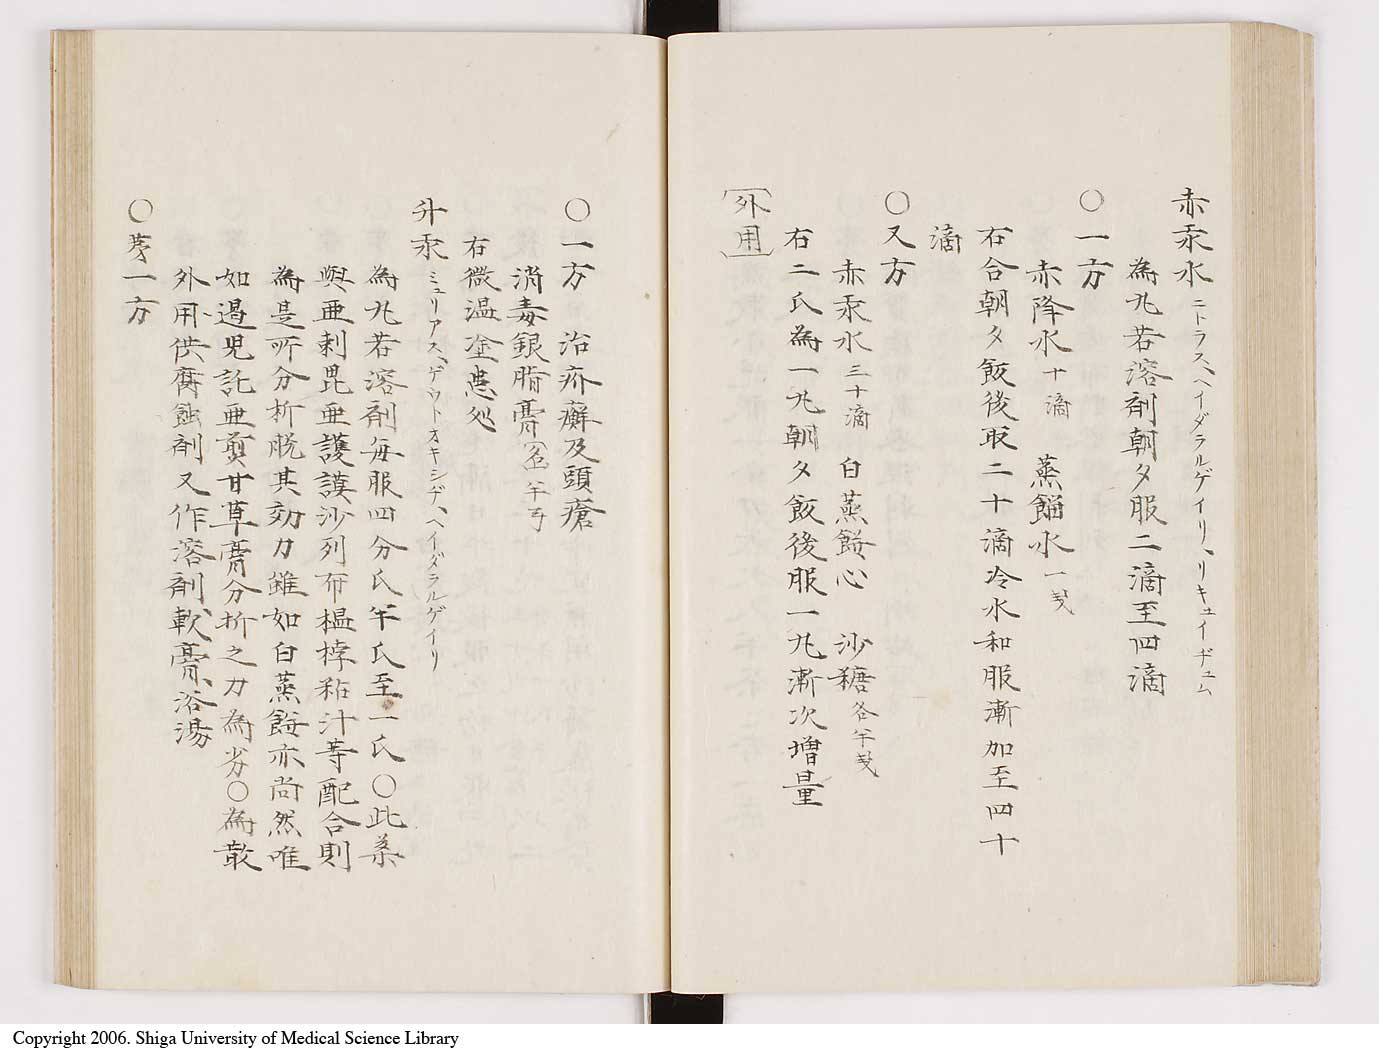 赤汞水 ニトラス、ヘイダラルゲイリ、リキュイヂュム
為丸若溶剤朝夕服二滴至四滴
〇一方
赤降水十滴 蒸餾水一戔
右合朝夕飯後取二十滴冷水和服漸加至四十
滴
〇又方
赤汞水三十滴 白蒸餅心 沙糖各半戔
右二氏為一丸朝夕飯後服一丸漸次増量
外用
〇一方 治疥癬及頭瘡
消毒銀脂膏 半丂
右微温塗患処
升汞 ミュリアス、ゲウトオキシヂ、ヘイダラルゲイリ
為丸若溶剤毎服四分氏半氏至一氏〇此薬
與亜刺毘亜護謨沙列布榲桲秥汁等配合則
為是所分析脱其効力雖如白蒸餅亦尚然唯
如過児託亜貢甘草膏分析之力為劣〇為散
外用供腐蝕剤又作溶剤、軟膏、浴湯
〇第一方
Copyright 2006. Shiga University of Medical Science Library